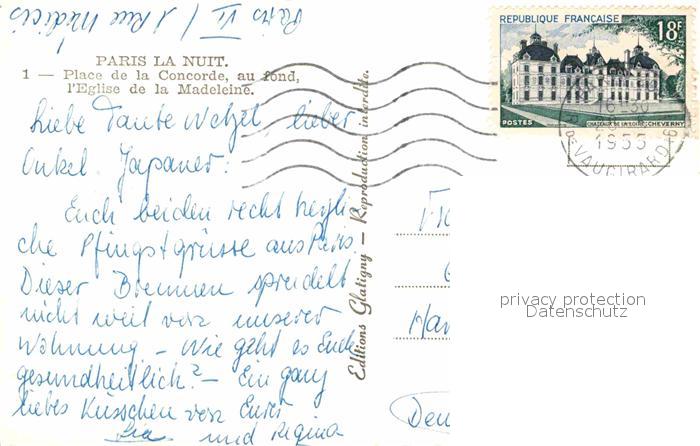 Paris VI / 1 Rue Médicis
PARIS LA NUIT.
1 — Place de la Concorde, au fond,
l'Eglise de la Madeleine.
Liebe Tante Wetzel lieber
Onkel Japaner:
Euch beiden recht herzli-
che Pfingstgrüsse aus Paris.
Dieser Brunnen sprudelt
nicht weit von unserer
Wohnung – Wie geht es Euch
gesundheitlich? – Ein ganz
liebes Küsschen von Eurer
Lia und Regina
Editions Glatigny — Reproduction interdite.
REPUBLIQUE FRANÇAISE
18F
POSTES
CHATEAUX DE LA LOIRE : CHEVERNY
16-30
1955
R. DE VAUGIRARD
privacy protection
Datenschutz
Ha
Deu